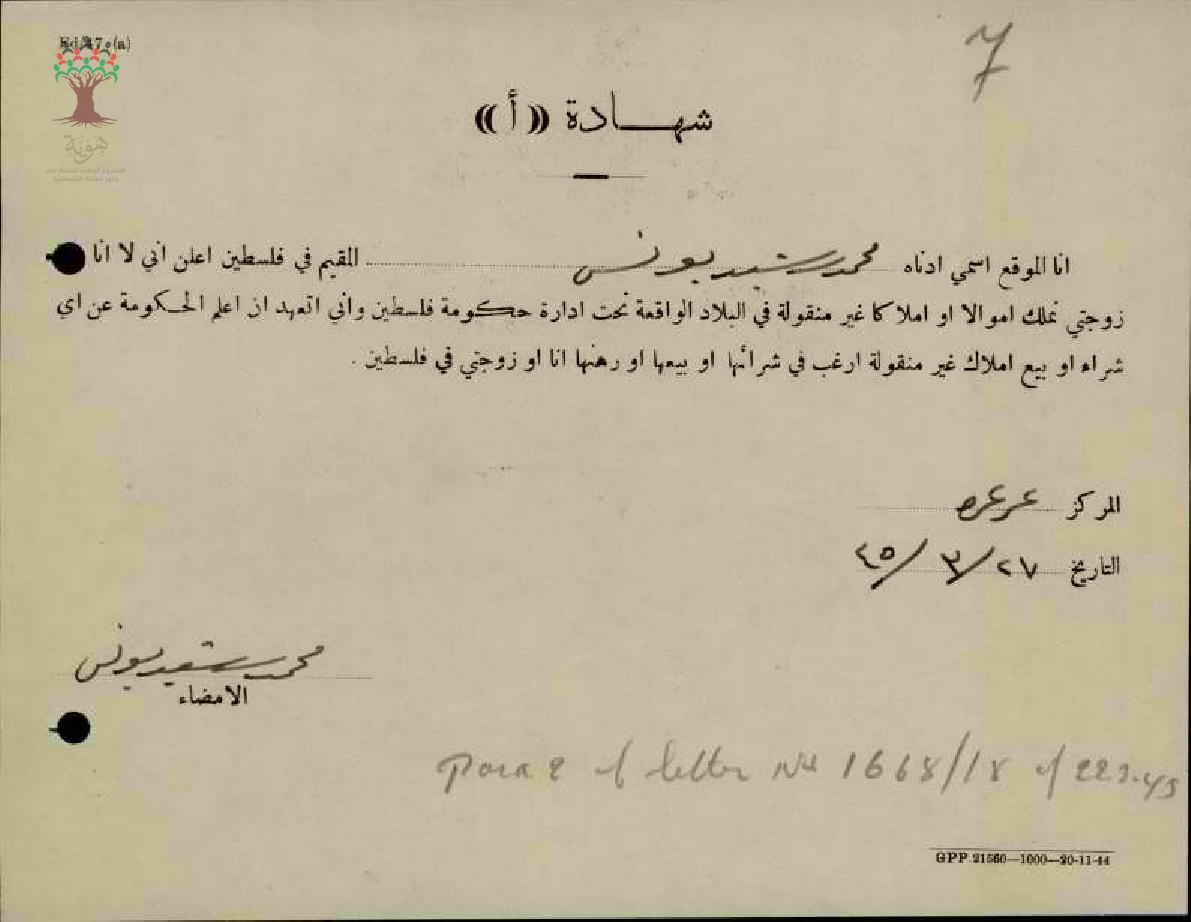 Ed/47.(a)
7
هوية
شهـــادة ((أ))
انا الموقع اسمي ادناه محمد سعيد يونس المقيم في فلسطين اعلن اني لا انا
زوجتي نملك اموالا او املاكا غير منقولة في البلاد الواقعة تحت ادارة حكومة فلسطين واني اتعهد ان اعلم الحكومة عن اي
شراء او بيع املاك غير منقولة ارغب في شرائها او بيعها او رهنها انا او زوجتي في فلسطين .
المركز عرعره
التاريخ ٢٧/٣/٤٥
محمد سعيد يونس
الامضاء
para 2 of letter No 1668/18 of 22.3.45
GPP 21560—1000—20-11-44